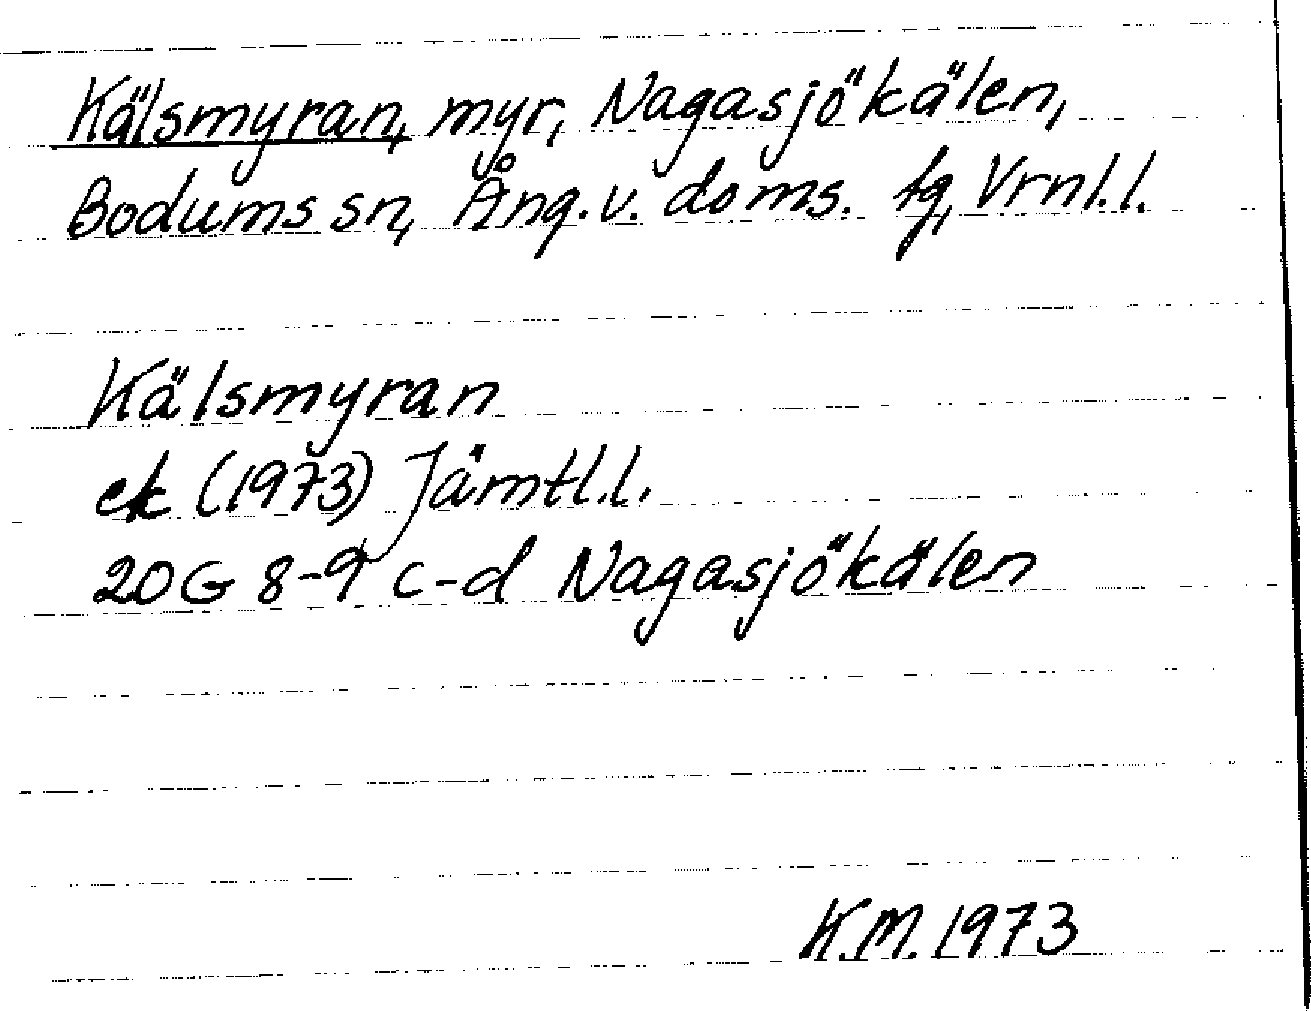 Kälsmyran, myr, Nagasjökälen,
Bodums sn, Ång. v. doms. tg, Vrnl.l.
Kälsmyran
ek (1973) Jämtl.l.
20G 8-9 c-d Nagasjökälen
K.M. 1973